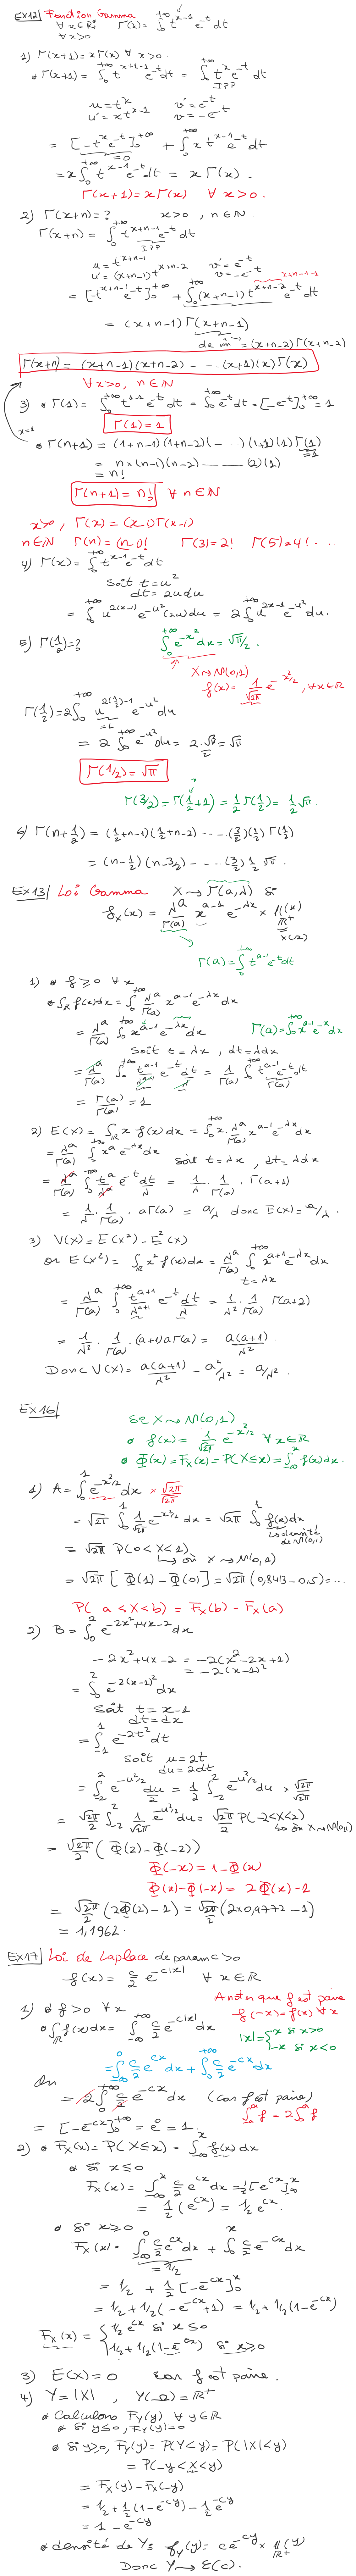 EX12/ Fonction Gamma
∀ x ∈ ℝ₊* Γ(x) = ∫₀^{+∞} t^{x-1} e^{-t} dt
∀ x>0
1) Γ(x+1) = x Γ(x) ∀ x>0.
* Γ(x+1) = ∫₀^{+∞} t^{x+1-1} e^{-t} dt = ∫₀^{+∞} t^x e^{-t} dt
IPP
u = t^x v' = e^{-t}
u' = x t^{x-1} v = -e^{-t}
= [-t^x e^{-t}]₀^{+∞} + ∫₀^{+∞} x t^{x-1} e^{-t} dt
=0
= x ∫₀^{+∞} t^{x-1} e^{-t} dt = x Γ(x).
Γ(x+1) = x Γ(x) ∀ x>0.
2) Γ(x+n) = ? x>0, n∈ℕ.
Γ(x+n) = ∫₀^{+∞} t^{x+n-1} e^{-t} dt
IPP
u = t^{x+n-1} v' = e^{-t}
u' = (x+n-1) t^{x+n-2} v = -e^{-t} x+n-1-1
= [-t^{x+n-1} e^{-t}]₀^{+∞} + ∫₀^{+∞} (x+n-1) t^{x+n-2} e^{-t} dt
= (x+n-1) Γ(x+n-1)
de m̂ = (x+n-2) Γ(x+n-2)
Γ(x+n) = (x+n-1)(x+n-2) - ... (x+1)(x) Γ(x)
∀ x>0, n∈ℕ
3) * Γ(1) = ∫₀^{+∞} t^{1-1} e^{-t} dt = ∫₀^{+∞} e^{-t} dt = [-e^{-t}]₀^{+∞} = 1
Γ(1) = 1
x=1
* Γ(n+1) = (1+n-1)(1+n-2)(- ...)(1+1)(1) Γ(1)
=1
= n×(n-1)(n-2) ---- (2)(1)
= n!
Γ(n+1) = n! ∀ n∈ℕ
x>0, Γ(x) = (x-1) Γ(x-1)
n∈ℕ Γ(n) = (n-1)! Γ(3)=2! Γ(5)=4! ...
4) Γ(x) = ∫₀^{+∞} t^{x-1} e^{-t} dt
Soit t = u²
dt = 2u du
= ∫₀^{+∞} u^{2(x-1)} e^{-u²} (2u) du = 2 ∫₀^{+∞} u^{2x-1} e^{-u²} du.
5) Γ(1/2) = ? ∫₀^{+∞} e^{-x²} dx = √π/2.
X ↝ N(0,1)
f(x) = 1/√2π e^{-x²/2}, ∀ x∈ℝ
Γ(1/2) = 2 ∫₀^{+∞} u^{2(1/2)-1} e^{-u²} du
=1
= 2 ∫₀^{+∞} e^{-u²} du = 2·√π/2 = √π
Γ(1/2) = √π
Γ(3/2) = Γ(1/2+1) = 1/2 Γ(1/2) = 1/2 √π.
6) Γ(n+1/2) = (1/2+n-1)(1/2+n-2) - ... (3/2)(1/2) Γ(1/2)
= (n-1/2)(n-3/2) - ... (3/2) 1/2 √π.
EX13/ Loi Gamma X ↝ Γ(a,λ) si
f_X(x) = λ^a/Γ(a) x^{a-1} e^{-λx} × 𝟙_{ℝ⁺}(x)
Γ(a) = ∫₀^{+∞} t^{a-1} e^{-t} dt
1) * f ≥ 0 ∀ x
* ∫_ℝ f(x) dx = ∫₀^{+∞} λ^a/Γ(a) x^{a-1} e^{-λx} dx
= λ^a/Γ(a) ∫₀^{+∞} x^{a-1} e^{-λx} dx Γ(a) = ∫₀^{+∞} x^{a-1} e^{-x} dx
Soit t = λx, dt = λdx
= λ^a/Γ(a) ∫₀^{+∞} t^{a-1}/λ^{a-1} e^{-t} dt/λ = 1/Γ(a) ∫₀^{+∞} t^{a-1} e^{-t} dt
Γ(a)
= Γ(a)/Γ(a) = 1
2) E(X) = ∫_ℝ x f(x) dx = ∫₀^{+∞} x · λ^a/Γ(a) x^{a-1} e^{-λx} dx
= λ^a/Γ(a) ∫₀^{+∞} x^a e^{-λx} dx soit t = λx, dt = λdx
= λ^a/Γ(a) ∫₀^{+∞} t^a/λ^a e^{-t} dt/λ = 1/λ · 1/Γ(a) · Γ(a+1)
= 1/λ · 1/Γ(a) · aΓ(a) = a/λ donc E(X) = a/λ.
3) V(X) = E(X²) - E²(X)
or E(X²) = ∫_ℝ x² f(x) dx = λ^a/Γ(a) ∫₀^{+∞} x^{a+1} e^{-λx} dx
t = λx
= λ^a/Γ(a) ∫₀^{+∞} t^{a+1}/λ^{a+1} e^{-t} dt/λ = 1/λ² · 1/Γ(a) Γ(a+2)
= 1/λ² · 1/Γ(a) · (a+1)aΓ(a) = a(a+1)/λ².
Donc V(X) = a(a+1)/λ² - a²/λ² = a/λ².
EX16/
Si X ↝ N(0,1)
* f(x) = 1/√2π e^{-x²/2} ∀ x∈ℝ
* Φ(x) = F_X(x) = P(X≤x) = ∫_{-∞}^x f(x) dx.
1) A = ∫₀¹ e^{-x²/2} dx × √2π/√2π
= √2π ∫₀¹ 1/√2π e^{-x²/2} dx = √2π ∫₀¹ f(x) dx
↳ densité de N(0,1)
= √2π P(0<X<1)
↳ où X ↝ N(0,1)
= √2π [Φ(1) - Φ(0)] = √2π (0,8413 - 0,5) = ...
P(a<X<b) = F_X(b) - F_X(a)
2) B = ∫₀² e^{-2x²+4x-2} dx
-2x²+4x-2 = -2(x²-2x+1)
= -2(x-1)²
= ∫₀² e^{-2(x-1)²} dx
Soit t = x-1
dt = dx
= ∫_{-1}^1 e^{-2t²} dt
Soit u = 2t
du = 2dt
= ∫_{-2}^2 e^{-u²/2} du/2 = 1/2 ∫_{-2}^2 e^{-u²/2} du × √2π/√2π
= √2π/2 ∫_{-2}^2 1/√2π e^{-u²/2} du = √2π/2 P(-2<X<2)
↳ où X ↝ N(0,1)
= √2π/2 (Φ(2) - Φ(-2))
Φ(-x) = 1 - Φ(x)
Φ(x) - Φ(-x) = 2Φ(x) - 1
= √2π/2 (2Φ(2) - 1) = √2π/2 (2×0,9772 - 1)
= 1,1962.
EX17/ Loi de Laplace de param c>0
f(x) = c/2 e^{-c|x|} ∀ x∈ℝ
A noter que f est paire
1) * f>0 ∀ x f(-x) = f(x) ∀ x
* ∫_ℝ f(x) dx = ∫_{-∞}^{+∞} c/2 e^{-c|x|} dx |x| = {x si x>0
-x si x<0
= ∫_{-∞}^0 c/2 e^{cx} dx + ∫₀^{+∞} c/2 e^{-cx} dx
ou
= 2 ∫₀^{+∞} c/2 e^{-cx} dx (car f est paire)
∫_{-a}^a f = 2∫₀^a f
= [-e^{-cx}]₀^{+∞} = e⁰ = 1
2) * F_X(x) = P(X≤x) = ∫_{-∞}^x f(x) dx
* Si x≤0
F_X(x) = ∫_{-∞}^x c/2 e^{cx} dx = 1/2 [e^{cx}]_{-∞}^x
= 1/2 (e^{cx}) = 1/2 e^{cx}.
* Si x≥0
F_X(x) = ∫_{-∞}^0 c/2 e^{cx} dx + ∫₀^x c/2 e^{-cx} dx
=1/2
= 1/2 + 1/2 [-e^{-cx}]₀^x
= 1/2 + 1/2 (-e^{-cx} + 1) = 1/2 + 1/2 (1-e^{-cx})
F_X(x) = {1/2 e^{cx} si x≤0
1/2 + 1/2 (1-e^{-cx}) si x≥0
3) E(X) = 0 car f est paire.
4) Y = |X|, Y(Ω) = ℝ⁺
* Calculons F_Y(y) ∀ y∈ℝ
* Si y≤0, F_Y(y) = 0
* Si y≥0, F_Y(y) = P(Y<y) = P(|X|<y)
= P(-y<X<y)
= F_X(y) - F_X(-y)
= 1/2 + 1/2 (1-e^{-cy}) - 1/2 e^{-cy}
= 1 - e^{-cy}
* densité de Y: f_Y(y) = c e^{-cy} × 𝟙_{ℝ⁺}(y)
Donc Y ↝ ℰ(c).